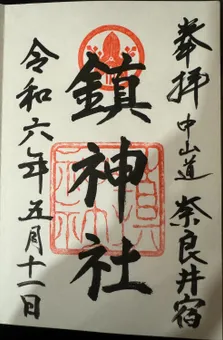 奉拝 中山道 奈良井宿
鎮神社
令和六年五月十一日